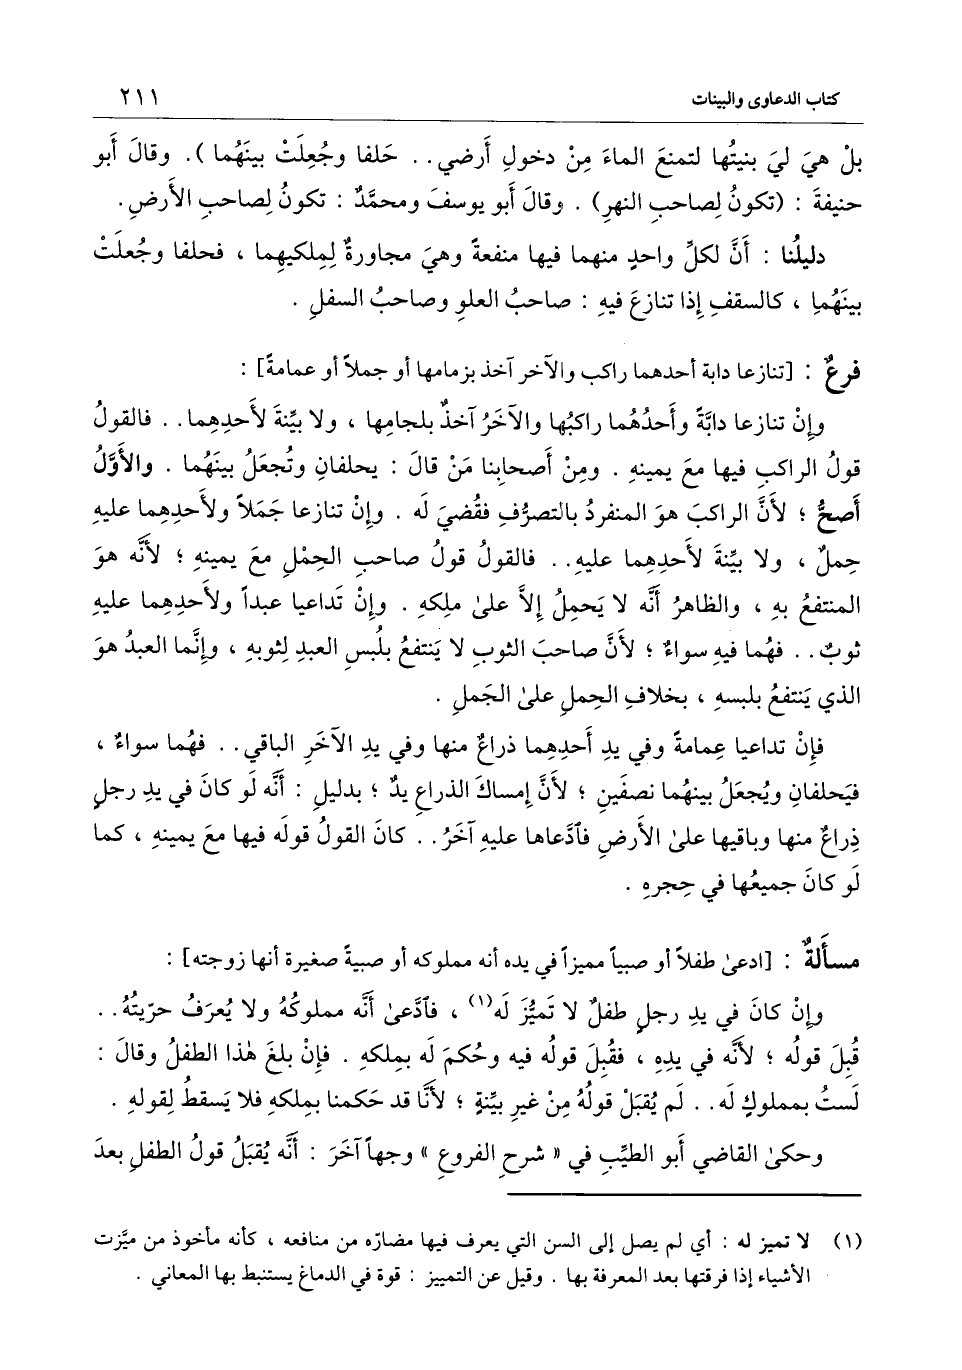 كتاب الدعاوى والبينات ٢١١
بلْ هيَ ليَ بنيتُها لتمنعَ الماءَ مِنْ دخولِ أَرضي . . حَلفا وجُعِلَتْ بينَهُما ) . وقالَ أَبو
حنيفةَ : (تكونُ لِصاحبِ النهرِ) . وقالَ أَبو يوسفَ ومحمَّدٌ : تكونُ لِصاحبِ الأَرضِ .
دليلُنا : أَنَّ لكلِّ واحدٍ منهما فيها منفعةً وهيَ مجاورةٌ لِمِلكيهِما ، فحلفا وجُعلَتْ
بينَهُما ، كالسقفِ إِذا تنازعَ فيهِ : صاحبُ العلوِ وصاحبُ السفلِ .
فرعٌ : [تنازعا دابة أحدهما راكب والآخر آخذ بزمامها أو جملاً أو عمامةً] :
وإِنْ تنازعا دابَّةً وأَحدُهُما راكبُها والآخَرُ آخذٌ بلجامِها ، ولا بيِّنةَ لأَحدِهِما . . فالقولُ
قولُ الراكبِ فيها معَ يمينهِ . ومِنْ أَصحابِنا مَنْ قالَ : يحلفانِ وتُجعَلُ بينَهُما . والأَوَّلُ
أَصحُّ ؛ لأَنَّ الراكبَ هوَ المنفردُ بالتصرُّفِ فقُضيَ لَه . وإِنْ تنازعا جَمَلاً ولأَحدِهِما عليهِ
حِملٌ ، ولا بيِّنةَ لأَحدِهِما عليهِ . . فالقولُ قولُ صاحبِ الحِمْلِ معَ يمينهِ ؛ لأَنَّه هوَ
المنتفعُ بهِ ، والظاهرُ أَنَّه لا يَحمِلُ إِلاَّ علىٰ ملِكهِ . وإِنْ تَداعيا عبداً ولأَحدِهِما عليهِ
ثوبٌ . . فهُما فيهِ سواءٌ ؛ لأَنَّ صاحبَ الثوبِ لا يَنتفعُ بلُبسِ العبدِ لِثوبهِ ، وإِنَّما العبدُ هوَ
الذي يَنتفعُ بلبسهِ ، بخلافِ الحِملِ علىٰ الجَملِ .
فإِنْ تداعيا عِمامةً وفي يدِ أَحدِهِما ذراعٌ منها وفي يدِ الآخَرِ الباقي . . فهُما سواءٌ ،
فيَحلفانِ ويُجعَلُ بينهُما نصفَينِ ؛ لأَنَّ إِمساكَ الذراعِ يدٌ ؛ بدليلِ : أَنَّه لَو كانَ في يدِ رجلٍ
ذِراعٌ منها وباقيها علىٰ الأَرضِ فٱدَّعاها عليهِ آخَرُ . . كانَ القولُ قولَه فيها معَ يمينهِ ، كما
لَو كانَ جميعُها في حِجرهِ .
مسأَلةٌ : [ادعىٰ طفلاً أو صبياً مميزاً في يده أنه مملوكه أو صبيةً صغيرة أنها زوجته] :
وإِنْ كانَ في يدِ رجلٍ طفلٌ لا تَميُّزَ لَه(١) ، فٱدَّعىٰ أَنَّه مملوكُهُ ولا يُعرَفُ حرّيتُهُ . .
قُبِلَ قولُه ؛ لأَنَّه في يدِهِ ، فقُبِلَ قولُه فيهِ وحُكمَ لَه بمِلكهِ . فإِنْ بلغَ هٰذا الطفلُ وقالَ :
لَستُ بمملوكٍ لَه . . لَم يُقبَلْ قولُهُ مِنْ غيرِ بيِّنةٍ ؛ لأَنَّا قد حَكمنا بمِلكهِ فلا يَسقطُ لِقولهِ .
وحكىٰ القاضي أَبو الطيِّبِ في « شرحِ الفروعِ » وجهاً آخَرَ : أَنَّه يُقبَلُ قولُ الطفلِ بعدَ
(١) لا تميز له : أي لم يصل إلى السن التي يعرف فيها مضارّه من منافعه ، كأنه مأخوذ من ميَّزت
الأشياء إذا فرقتها بعد المعرفة بها . وقيل عن التمييز : قوة في الدماغ يستنبط بها المعاني .